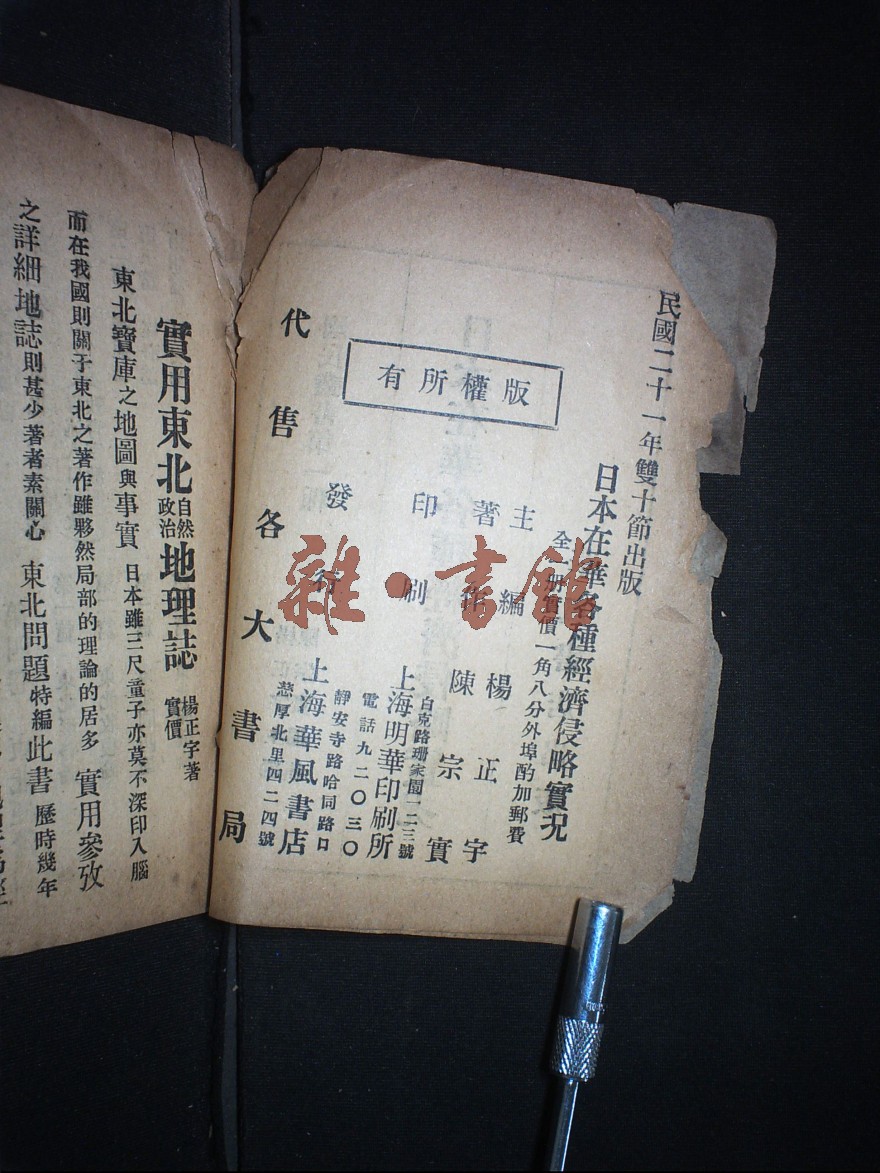 民國二十一年雙十節出版
日本在華各種經濟侵略實況
全一册實價一角八分外埠酌加郵費
版權所有
主編 楊正宇
著作 陳宗實
印刷 上海明華印刷所
白克路珊家園一二三號
電話九二〇三〇
發行 上海華風書店
靜安寺路哈同路口
慈厚北里四二四號
代售各大書局
實用東北自然政治地理誌 楊正宇著 實價
東北寶庫之地圖與事實 日本雖三尺童子亦莫不深印入腦
而在我國則關于東北之著作雖夥然局部的理論的居多 實用參攷
之詳細地誌則甚少著者素關心 東北問題特編此書 歷時幾年
雜·書館